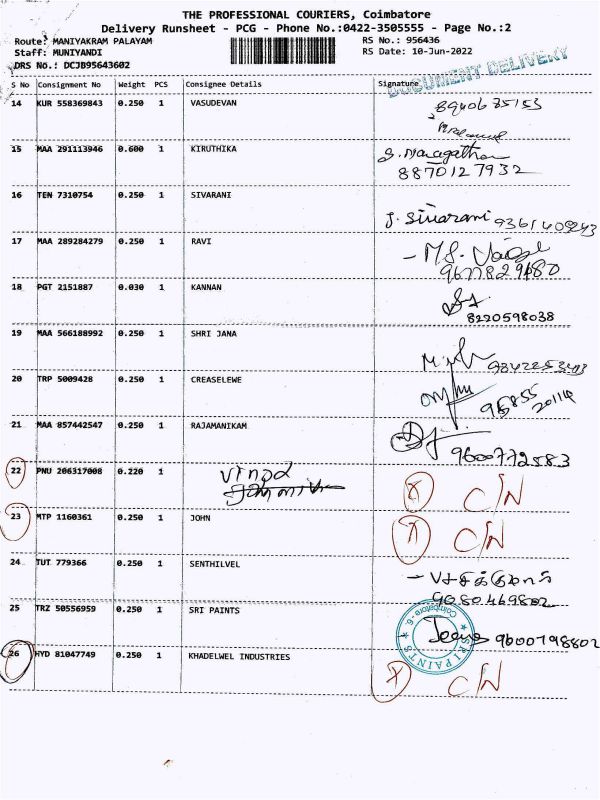 THE PROFESSIONAL COURIERS, Coimbatore
Delivery Runsheet - PCG - Phone No.:0422-3505555 - Page No.:2
Route: MANIYAKRAM PALAYAM RS No.: 956436
Staff: MUNIYANDI RS Date: 10-Jun-2022
DRS No.: DCJB95643602
DOCUMENT DELIVERY
S No Consignment No Weight PCS Consignee Details Signature
14 KUR 558369843 0.250 1 VASUDEVAN 8940675153
15 MAA 291113946 0.600 1 KIRUTHIKA S. Maragatham
8870127932
16 TEN 7310754 0.250 1 SIVARANI J. Sivarani
17 MAA 289284279 0.250 1 RAVI
18 PGT 2151887 0.030 1 KANNAN
8220598038
19 MAA 566188992 0.250 1 SHRI JANA
20 TRP 5009428 0.250 1 CREASELEWE 95855
20114
21 MAA 857442547 0.250 1 RAJAMANIKAM
9600772583
22 PNU 206317008 0.220 1 X C/N
23 MTP 1160361 0.250 1 JOHN X C/N
24 TUT 779366 0.250 1 SENTHILVEL
9080469802
25 TRZ 50556959 0.250 1 SRI PAINTS 9600798802
SRI PAINTS Coimbatore - 6.
26 HYD 81047749 0.250 1 KHADELWEL INDUSTRIES X C/N